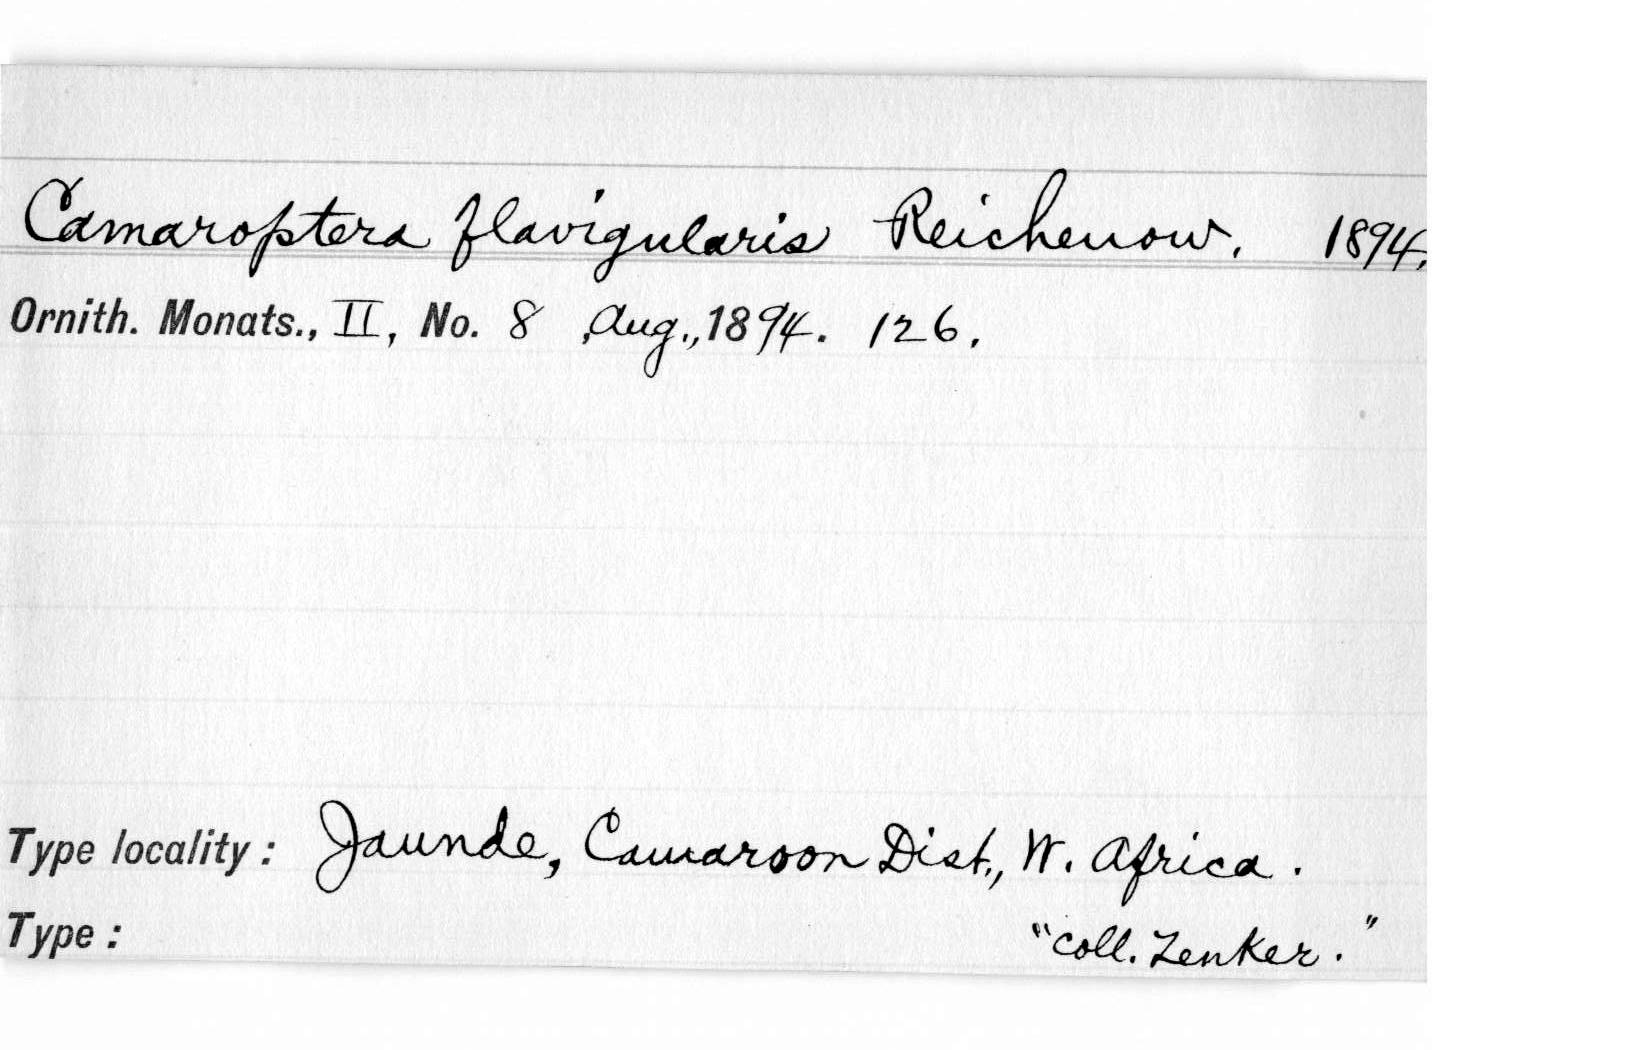 Camaroptera flavigularis Reichenow. 1894.
Ornith. Monats., II, No. 8 , Aug., 1894. 126.
Type locality: Jaunde, Camaroon Dist., W. Africa.
Type: "coll. Zenker."